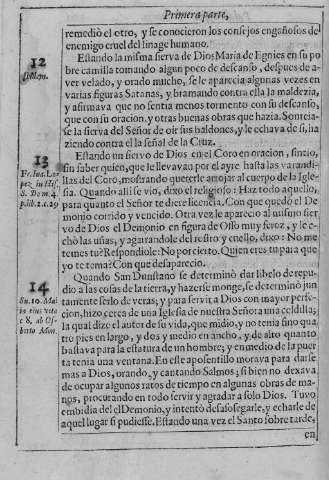 Primera parte,
remediò el otro, y se conocieron los consejos engañosos del
enemigo cruel del linage humano.
12
Estando la misma sierva de Dios Maria de Egnies en su po
bre camilla tomando algun poco de descanso, despues de a-
ver velado, y orado mucho, se le aparecia algunas vezes en
varias figuras Satanas, y bramando contra ella la maldezia,
y afirmava que no sentia menos tormento con su descanso,
que con su oracion, y otras buenas obras que hazia. Sonreia-
se la sierva del Señor de oir sus baldones, y le echava de si, ha
ziendo contra el la señal de la Cruz.
13
Fr. Iua. Lo
pez, in His
S. Dom. 4.
p. lib. 2. c. 29
Estando un siervo de Dios en el Coro en oracion, sintio,
sin saber quien, que le llevavan por el ayre hasta las varandi
llas del Coro, mostrando quererle arrojar al cuerpo de la Igle-
sia. Quando alli se vio, dixo el religioso: Haz todo aquello,
para quanto el Señor te diere licencia. Con que quedò el De
monio corrido y vencido. Otra vez le aparecio al mismo sier
vo de Dios el Demonio en figura de Osso muy feroz, y le e-
chò las uñas, y agarrandole del rostro y cuello, dixo: No me
temes tu? Respondiole: No por cierto. Quien eres tu para que
yo te tema? Con que desaparecio.
14
Su. 10. Mai
c. 8. ab Os
berto Mon.
Quando San Dunstano se determinò dar libelo de repu-
dio a las cosas de la tierra, y hazerse monge, se determinò jun
tamente serlo de veras; y para servir a Dios con mayor perfe-
cion, hizo cerca de una Iglesia de nuestra Señora una celdilla;
la qual dize el autor de su vida, que midio, y no tenia sino qua
tro pies en largo, y dos y medio en ancho, y de alto quanto
bastava para la estatura de un hombre; y en medio de la puer
ta tenia una ventana. En este aposentillo morava para darse
mas a Dios, orando, y cantando Salmos; si bien no dexava
de ocupar algunos ratos de tiempo en algunas obras de ma-
nos, procurando en todo servir y agradar a solo Dios. Tuvo
embidia del el Demonio, y intentò desasosegarle, y echarle de
aquel lugar si pudiesse. Estando una vez el Santo sobre tarde,
en